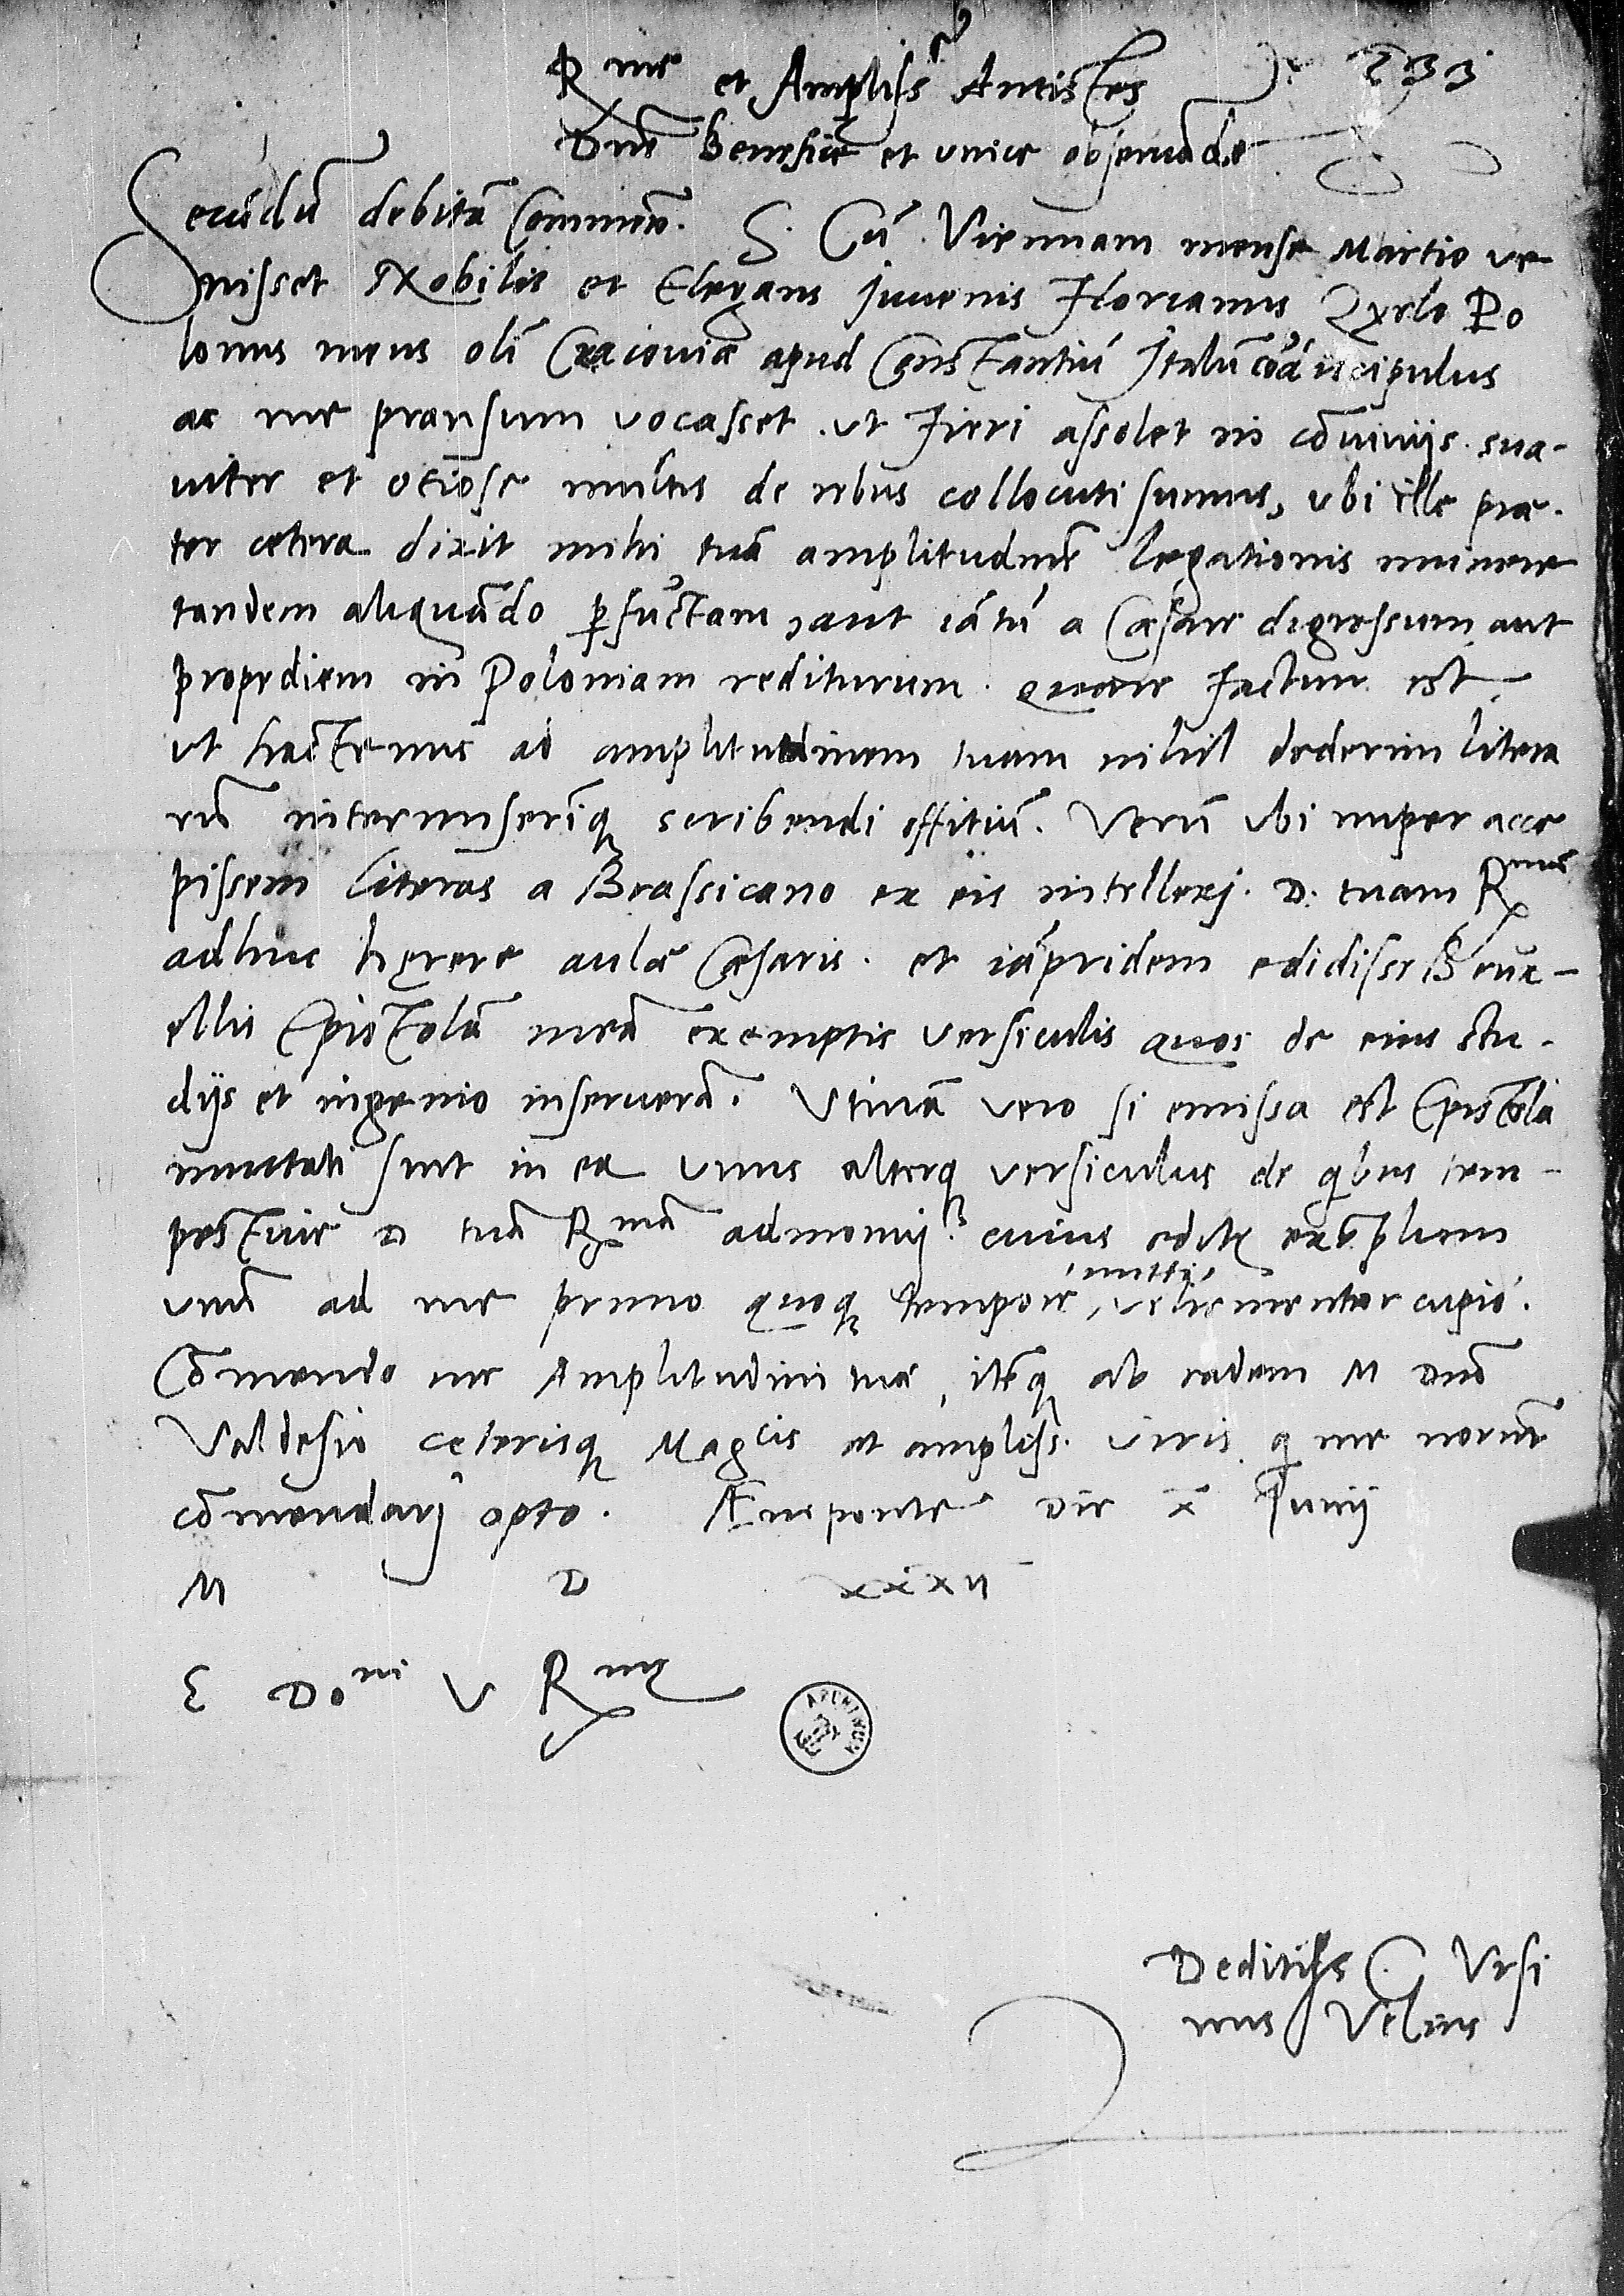 R^me et Ampliss^e Antistes 233
Dne benefice et vnice obseruade
Secūdū debitā Commen. S. Cū Viennam mense Martio ve
nisset Nobilis et Elegans Juuenis Florianus Polo
lonus meus oli Cracouiæ apud Constantiū Italū cōdiscipulus
ac me pransum vocasset. vt fieri assolet in cōuiuijs. sua-
uiter et otiose multis de rebus collocuti sumus, vbi ille præ-
ter cetera dixit mihi tuā amplitudinē legationis munere
tandem aliquādo pfūctam, aut iātū a Cæsare digressum, aut
propediem in Poloniam rediturum. quare factum est
vt hactenus ad amplitudinem tuam nihil dederim litera
rū intermiserīq scribendi offitiū. Verū vbi nuper acce
pissem literas a Brassicano ex eis intellexj. D. tuam R^mā
adhuc hęrere aulæ Cæsaris. et iāpridem edidisse Brux-
ellis Epistolā meā exemptis versiculis quos de eius stu-
dijs et ingenio inserverā. Vtinā vero si emissa est Epistola
mutati sint in ea vnus alterq versiculus de qbus tem-
pestiue D tuā R^mā admonuj. cuius editę exēplum
vnū ad me primo quoq tempore, mitti, vehementer cupio.
Cōmendo me Amplitudini tuæ, itēq ab eadem M Dno
Valdesio ceterisq Mag^cis et ampliss. viris q me norunt
cōmendarj opto. Æniponte Die x Junij
M D xxxii
E Do^ni V R^me
ARCHIWUM
Deditiss C. Vrsi
nus Velius